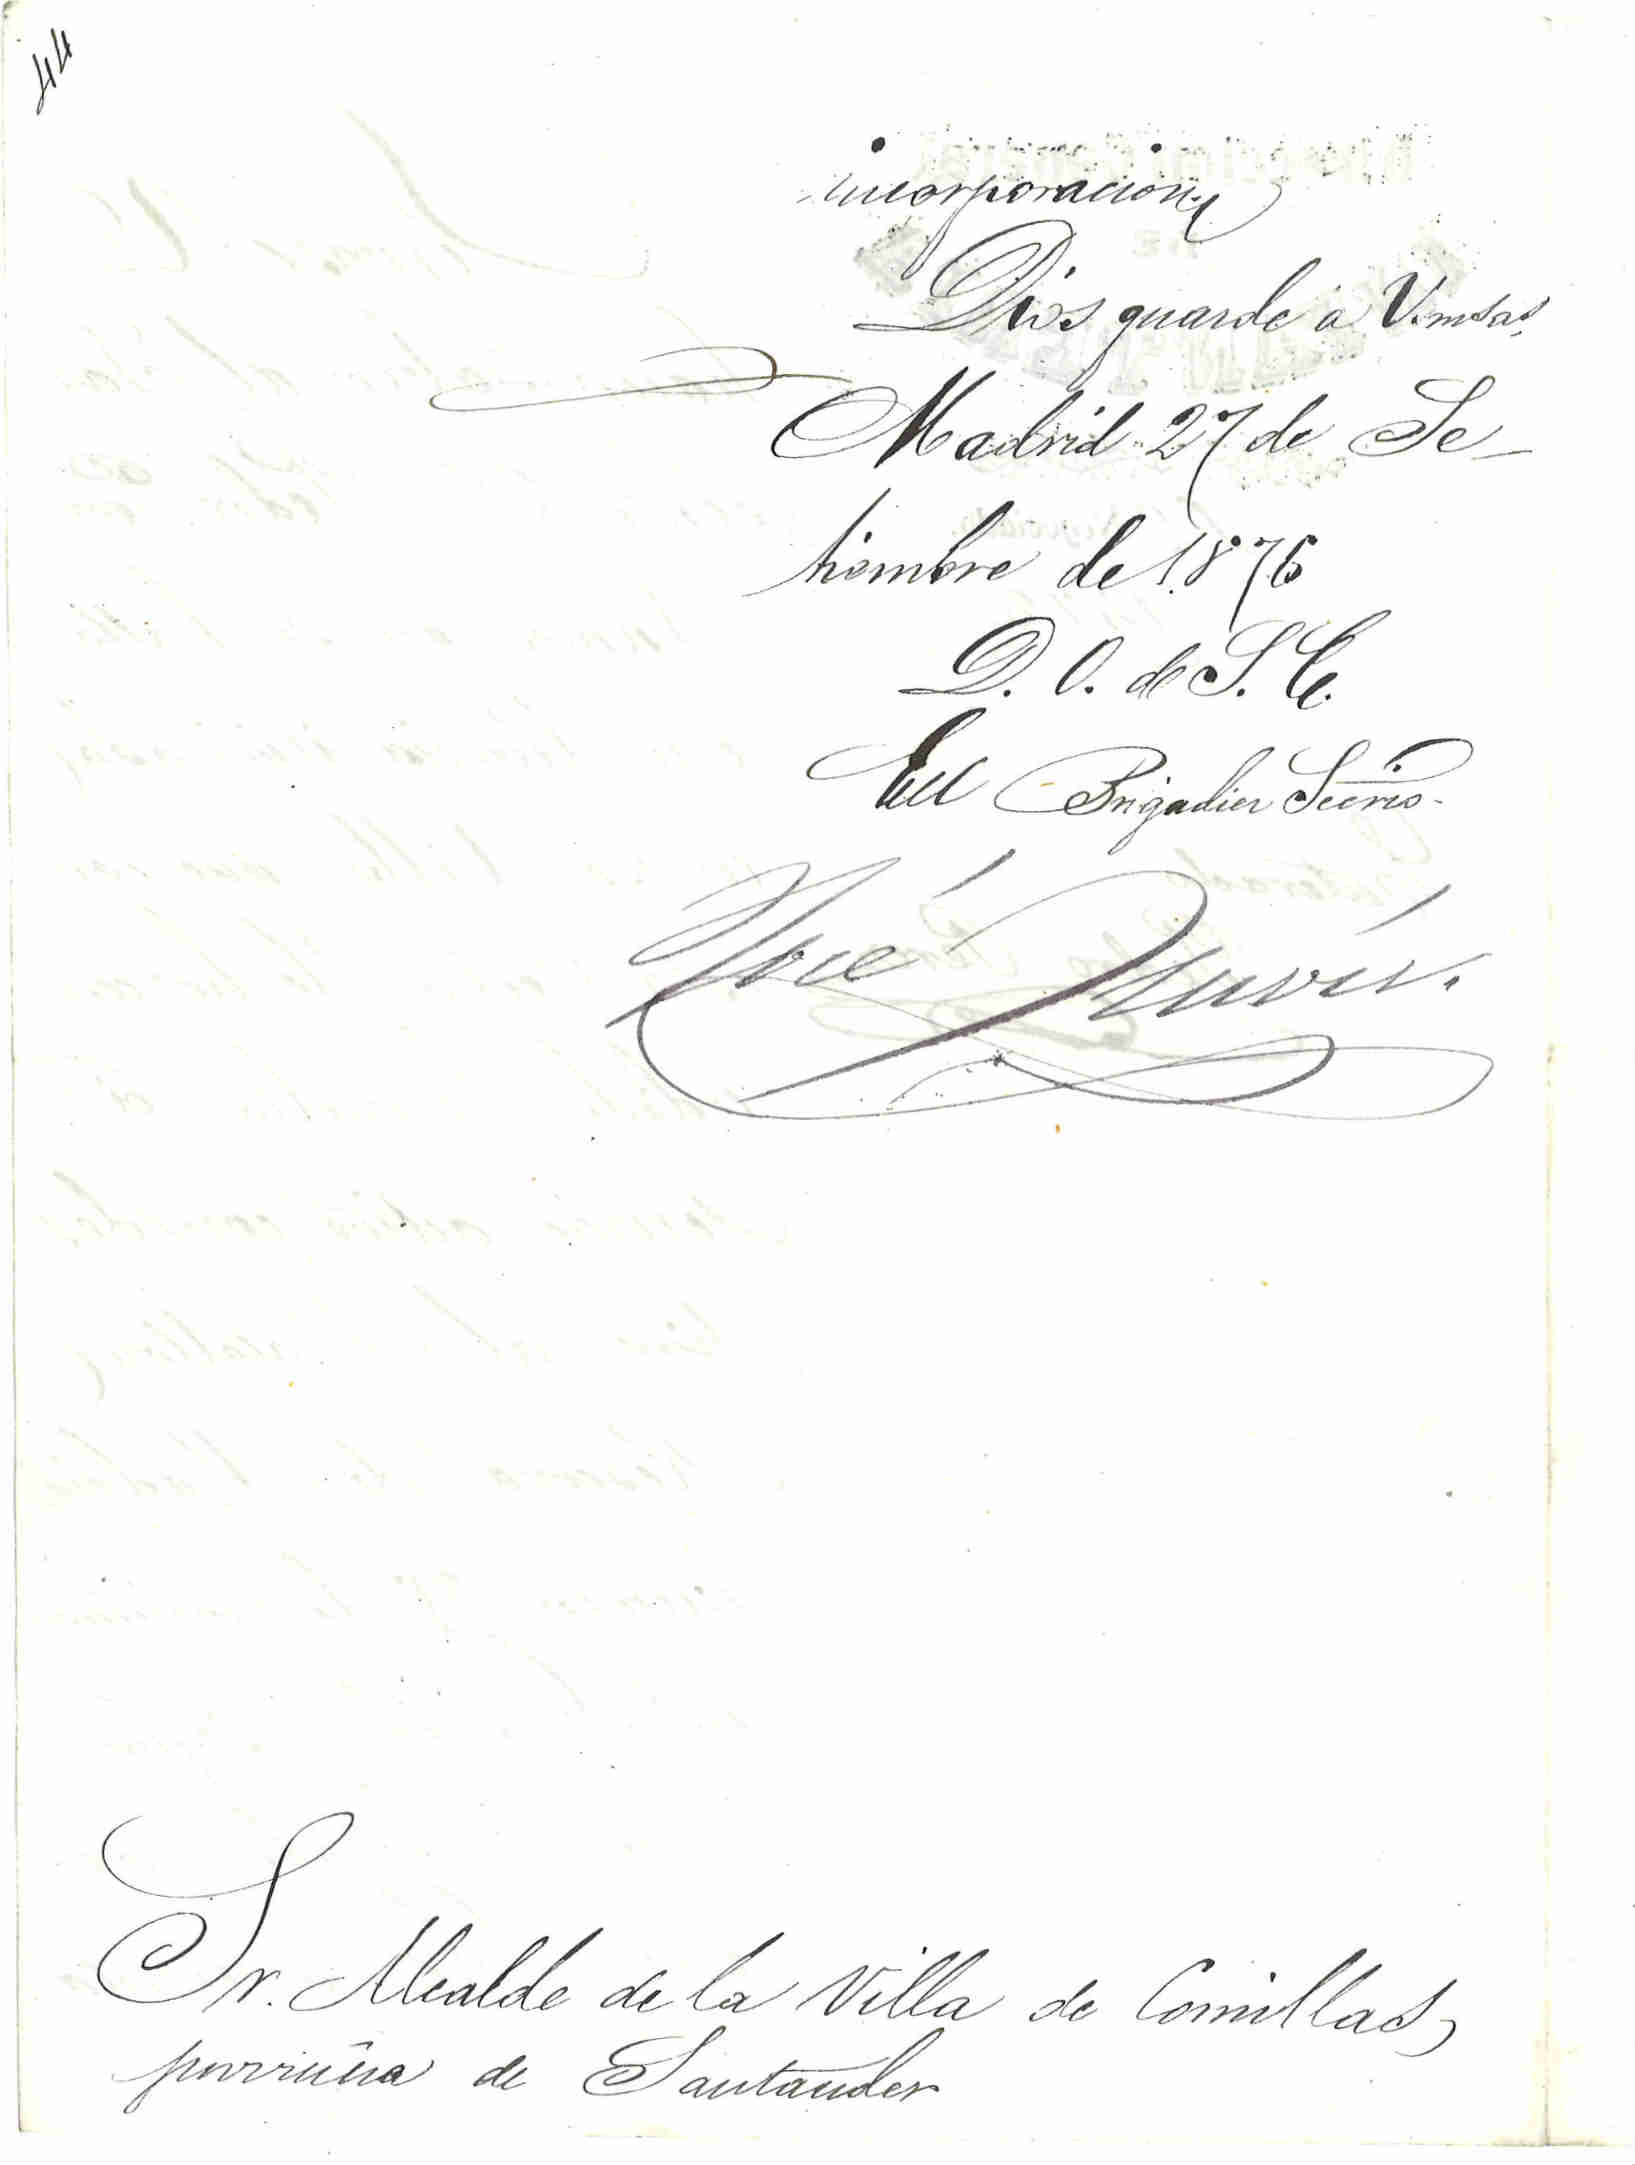 44
incorporacion
Dios guarde á V. ms as.
Madrid 27 de Se-
tiembre de 1876
D. O. de S. E.
El Brigadier Secrio.
José
Sr. Alcalde de la Villa de Comillas,
provincia de Santander